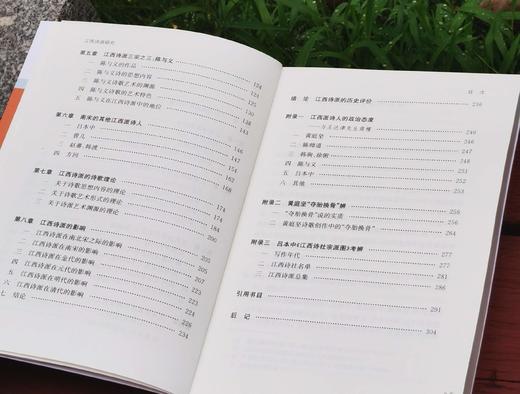 江西诗派研究
第五章 江西诗派三宗之三:陈与义 124
一 陈与义的作品 124
二 陈与义诗的思想内容
三 陈与义诗歌艺术的渊源
四 陈与义诗歌的艺术特色
五 陈与义在江西诗派中的地位
第六章 南宋的其他江西派诗人 146
一 吕本中 146
二 曾几 147
三 赵蕃、韩淲 153
四 方回 160
第七章 江西诗派的诗歌理论 168
一 关于诗歌思想内容的理论 174
二 关于诗歌艺术形式的理论 174
三 关于诗派艺术渊源的理论 184
第八章 江西诗派的影响 200
一 江西诗派在南北宋之际的影响 205
二 江西诗派在南宋的影响 205
三 江西诗派在金代的影响 207
四 江西诗派在元代的影响 223
五 江西诗派在明代的影响 224
六 江西诗派在清代的影响 226
七 结论 234
目 次
绪 论 江西诗派的历史评价 236
附录一 江西派诗人的政治态度 246
与王达津先生商榷
一 黄庭坚 246
二 陈师道 249
三 韩驹、徐俯 250
四 陈与义 251
五 吕本中 252
六 其他 253
附录二 黄庭坚“夺胎换骨”辨 256
一 “夺胎换骨”说的实质 256
二 黄庭坚诗歌创作中的“夺胎换骨” 264
附录三 吕本中《江西诗社宗派图》考辨 277
一 写作年代 277
二 江西诗社名单 281
三 江西诗派总集 286
引用书目 291
后 记 304